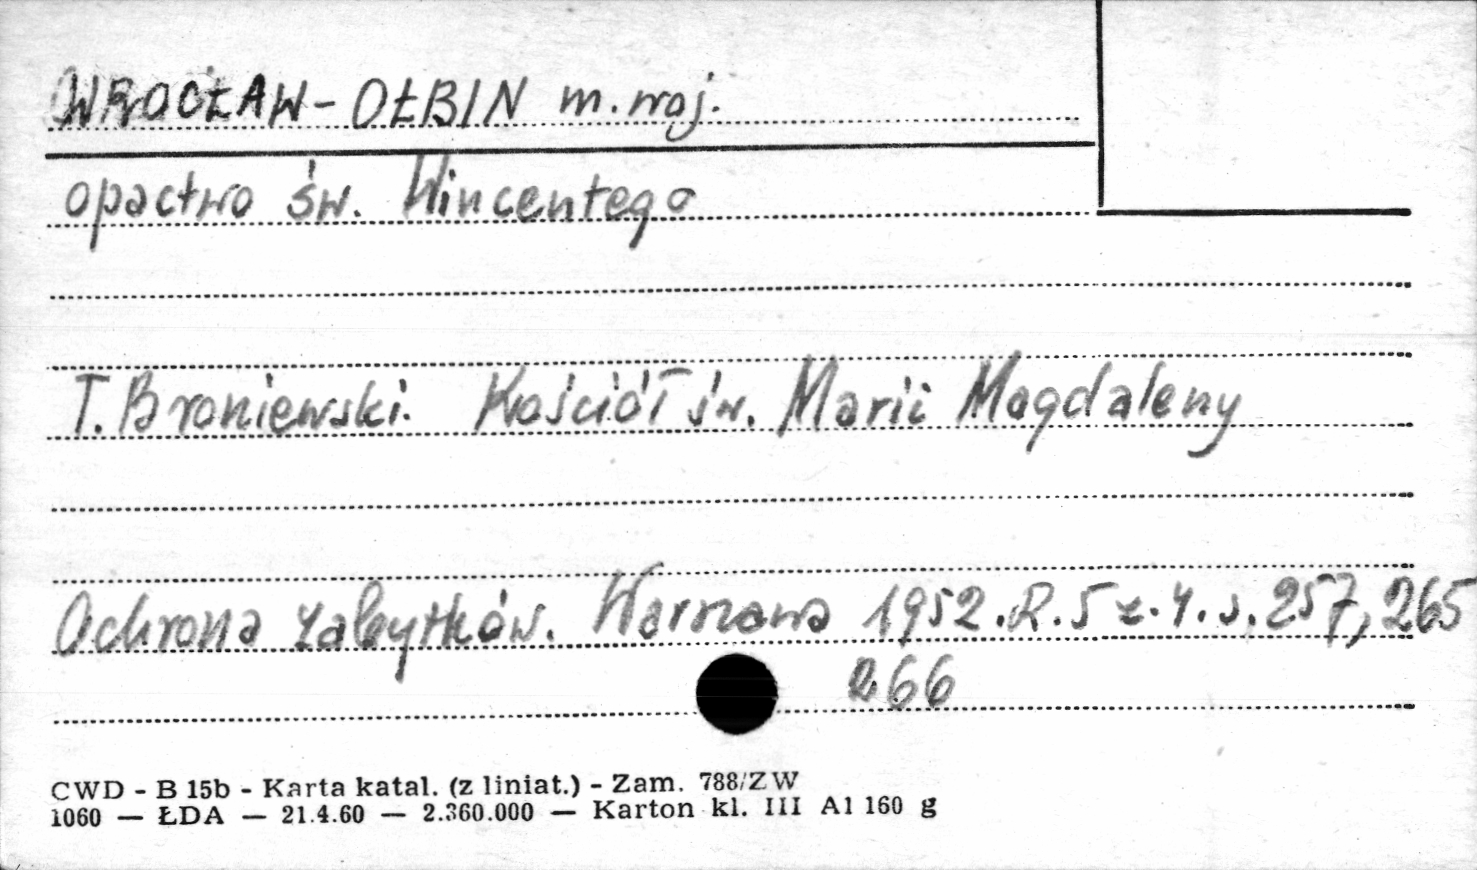 WROCŁAW-OŁBIN m. woj.
opactwo św. Wincentego
T. Broniewski. Kościół św. Marii Magdaleny
Ochrona Zabytków. Warszawa 1952. R. 5 z. 4. s. 257, 265
266
CWD - B 15b - Karta katal. (z liniat.) - Zam. 788/ZW
1060 — ŁDA — 21.4.60 — 2.360.000 — Karton kl. III A1 160 g